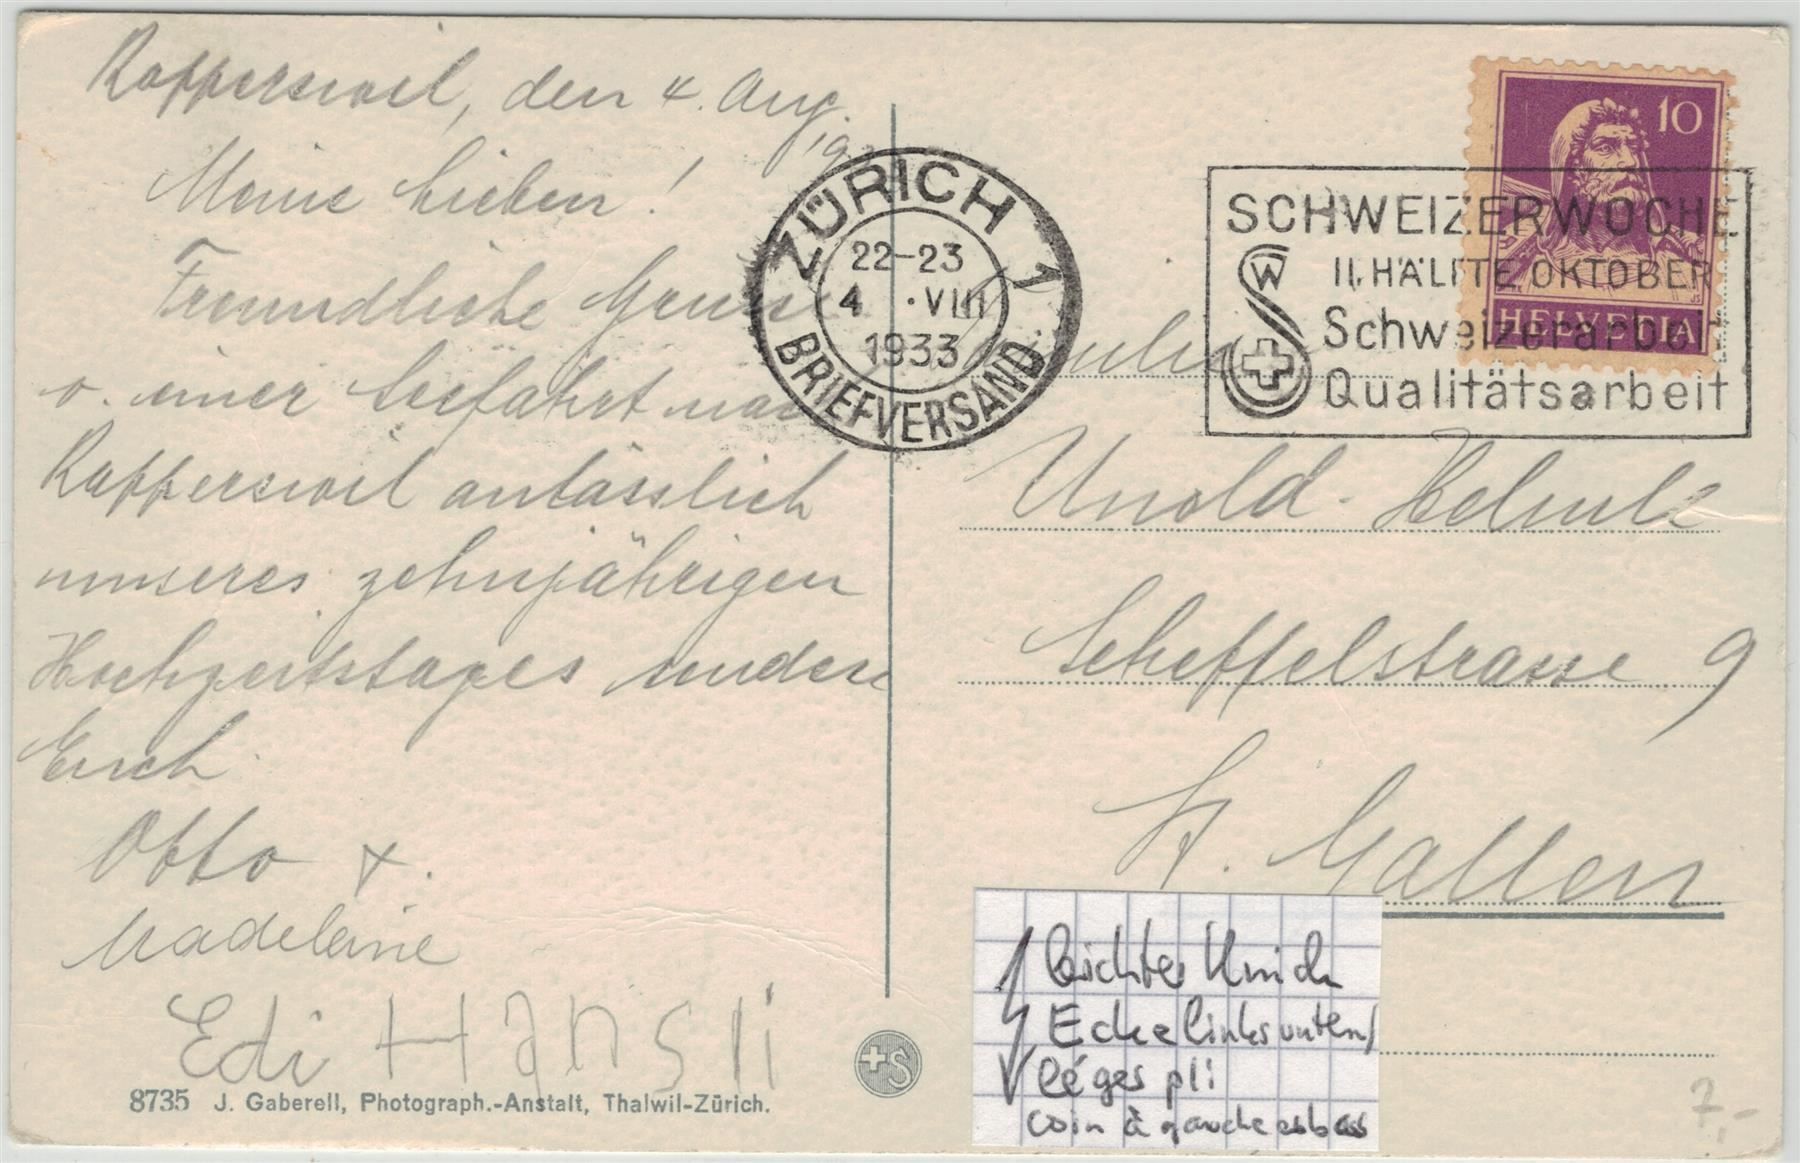 Rapperswil, den 4. Aug.
19
Meine Lieben!
Freundliche Grüsse
v. einer Seefahrt nach
Rapperswil anlässlich
unseres zehnjährigen
Hochzeitstages senden
Euch
Otto &.
Madeleine
Edi Hansli
8735 J. Gaberell, Photograph.-Anstalt, Thalwil-Zürich.
+S
ZÜRICH 1
22-23
4 ·VIII
1933
BRIEFVERSAND
10
HELVETIA
SCHWEIZERWOCHE
W
II. HÄLFTE OKTOBER
Schweizerarbeit
Qualitätsarbeit
Familie
Unold-
Scheffelstrasse 9
St. Gallen
leichter Knick
Ecke links unten/
léger pli
coin à gauche en bas
7,-